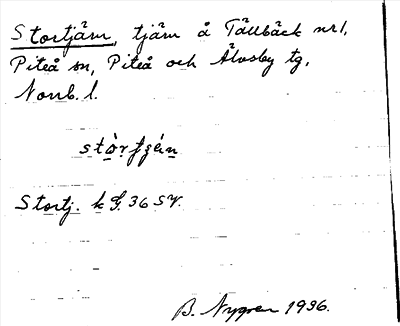 Stortjärn, tjärn å Tällbäck nr 1,
Piteå sn, Piteå och Älvsby tg,
Norrb. l.
Stortj. k G. 36 SV.
B. Nygren 1936.